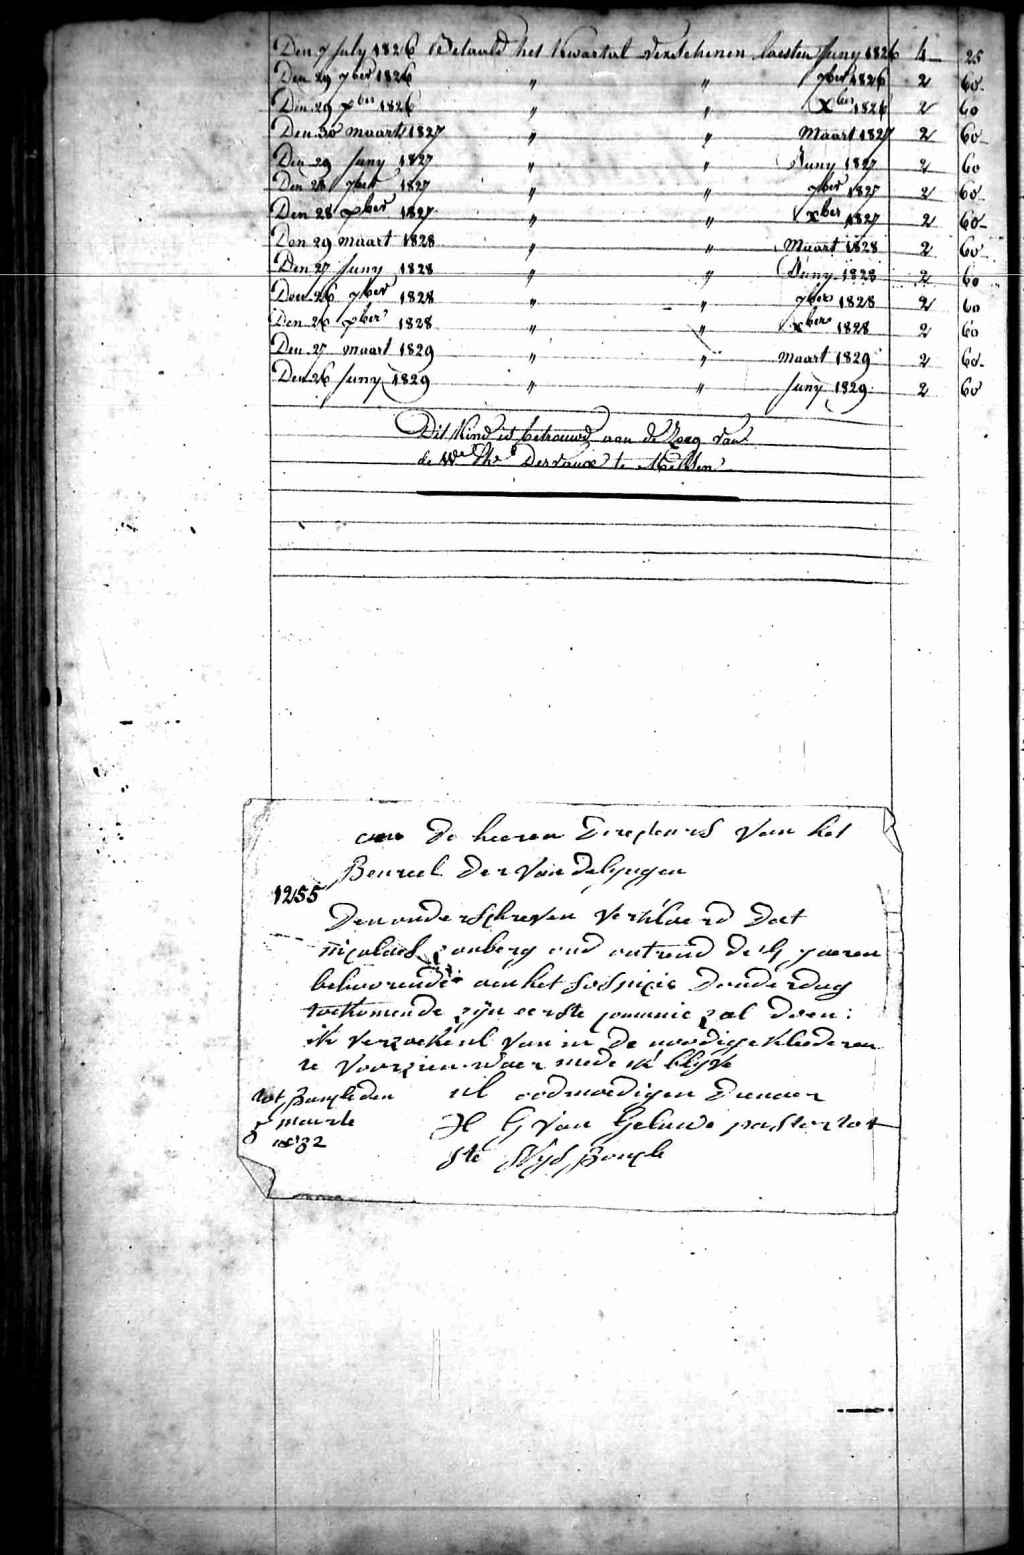 Den 7 July 1826 Betaald het kwartal verschenen laesten Juny 1826 4 25
Den 29 7ber 1826 " " 7ber 1826 2 60
Den 29 xber 1826 " " Xber 1826 2 60
Den 30 maart 1827 " " Maart 1827 2 60
Den 29 Juny 1827 " " Juny 1827 2 60
Den 28 7ber 1827 " " 7ber 1827 2 60
Den 28 xber 1827 " " xber 1827 2 60
Den 29 maart 1828 " " Maart 1828 2 60
Den 27 Juny 1828 " " Juny 1828 2 60
Den 26 7ber 1828 " " 7ber 1828 2 60
Den 26 xber 1828 " " xber 1828 2 60
Den 27 maart 1829 " " maart 1829 2 60
Den 26 Juny 1829 " " Juny 1829 2 60
Dit Kind is betrouwd aan de Zorg van
de We Desvaux te Melden
aen de heeren Directeurs van het
Bureel der Vondelyngen
1255
Den onderschreven verklaerd dat
nicolaes oud ontrend de jaeren
behoorende aen het hospicie Donderdag
toekomende zijn eerste comunie zal doen:
ik verzoeke ul van in de noodige kleederen
te voorzien waer mede ik blijve
tot den ul oodmoedigen Dienaer
8 maerte H G van Geluwe pastor tot
1832
Ste